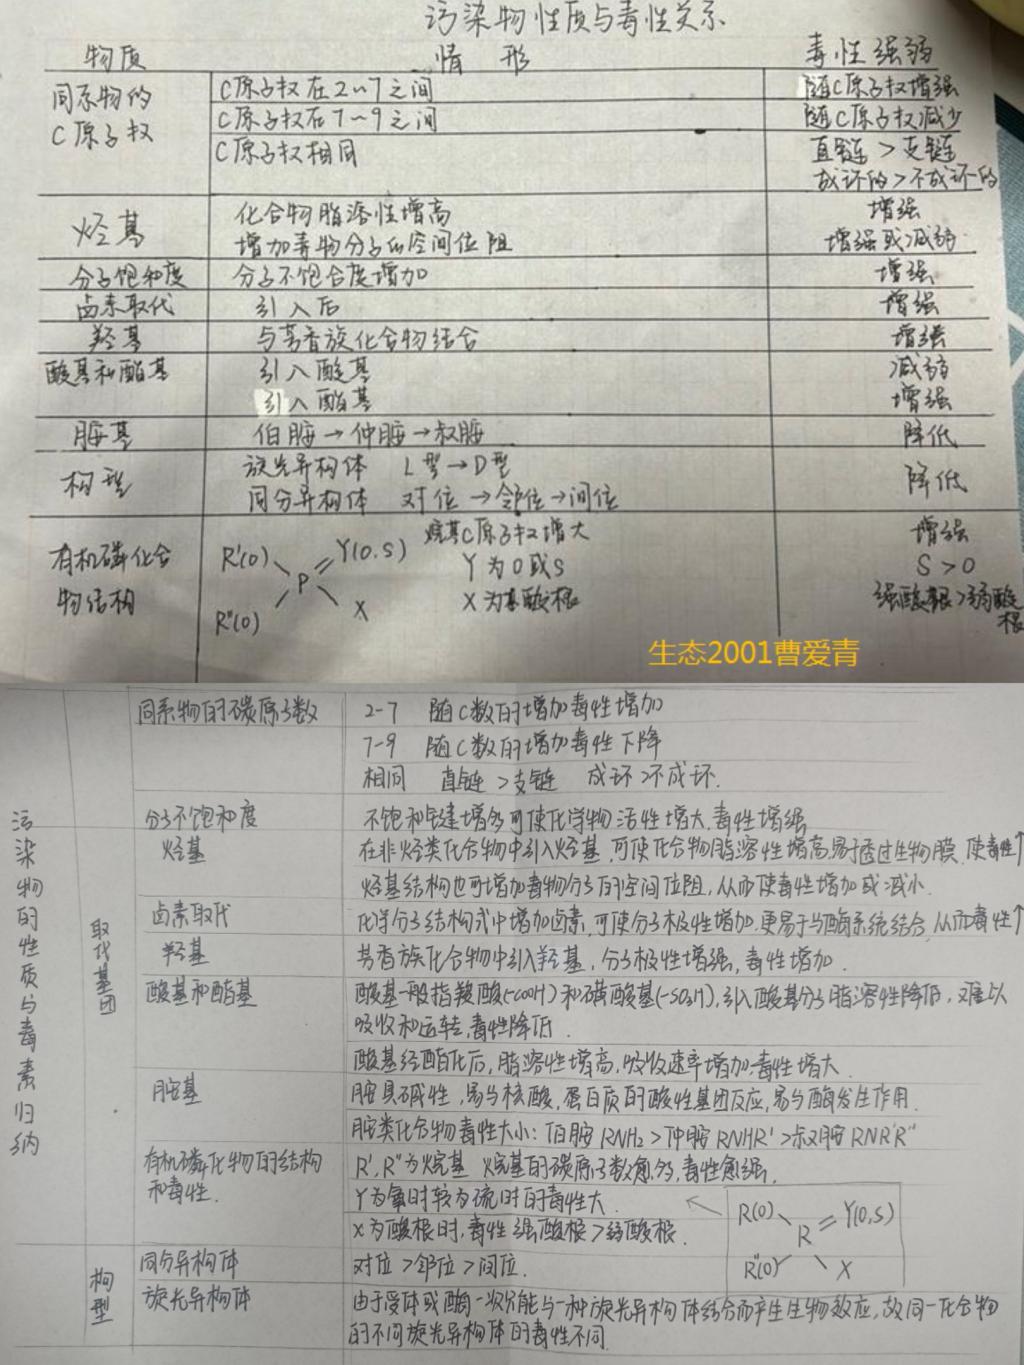 污染物性质与毒性关系
物质 情形 毒性强弱
同系物的 C原子权在2~7之间 随C原子权增强
C原子权 C原子权在7~9之间 随C原子权减少
C原子权相同 直链>支链
成环的>不成环的
烃基 化合物脂溶性增高 增强
增加毒物分子的空间位阻 增强或减弱
分子饱和度 分子不饱合度增加 增强
卤素取代 引入后 增强
羟基 与芳香族化合物结合 增强
酸基和酯基 引入酸基 减弱
引入酯基 增强
胺基 伯胺→仲胺→叔胺 降低
构型 旋光异构体 L型→D型 降低
同分异构体 对位→邻位→间位
有机磷化合 R'(O) Y(O,S) 烷基C原子权增大 增强
物结构 P Y为O或S S>O
R"(O) X X为基酸根 强酸根>弱酸根
生态2001曹爱青
污染物的性质与毒素归纳
同系物的碳原子数 2-7 随C数的增加毒性增加
7-9 随C数的增加毒性下降
相同 直链>支链 成环>不成环.
分子不饱和度 不饱和键增多可使化学物活性增大.毒性增强
取代基团
烃基 在非烃类化合物中引入烃基,可使化合物脂溶性增高,易于透过生物膜,使毒性↑
烃基结构也可增加毒物分子的空间位阻,从而使毒性增加或减小.
卤素取代 化学分子结构式中增加卤素,可使分子极性增加.更易于与酶系统结合,从而毒性↑
羟基 芳香族化合物中引入羟基,分子极性增强,毒性增加.
酸基和酯基 酸基一般指羧酸(-COOH)和磺酸基(-SO₃H),引入酸基分子脂溶性降低,难以
吸收和运转,毒性降低.
酸基经酯化后,脂溶性增高,吸收速率增加.毒性增大.
胺基 胺具碱性,易与核酸,蛋白质的酸性基团反应,易与酶发生作用.
胺类化合物毒性大小:伯胺 RNH₂>仲胺 RNHR'>叔胺 RNR'R"
有机磷化物的结构 R',R"为烷基 烷基的碳原子数愈多,毒性愈强.
和毒性. Y为氧时较为硫时的毒性大.
X为酸根时,毒性强酸根>弱酸根.
R(O) Y(O,S)
R
R"(O) X
构型
同分异构体 对位>邻位>间位.
旋光异构体 由于受体或酶一次只能与一种旋光异构体结合而产生生物效应,故同一化合物
的不同旋光异构体的毒性不同